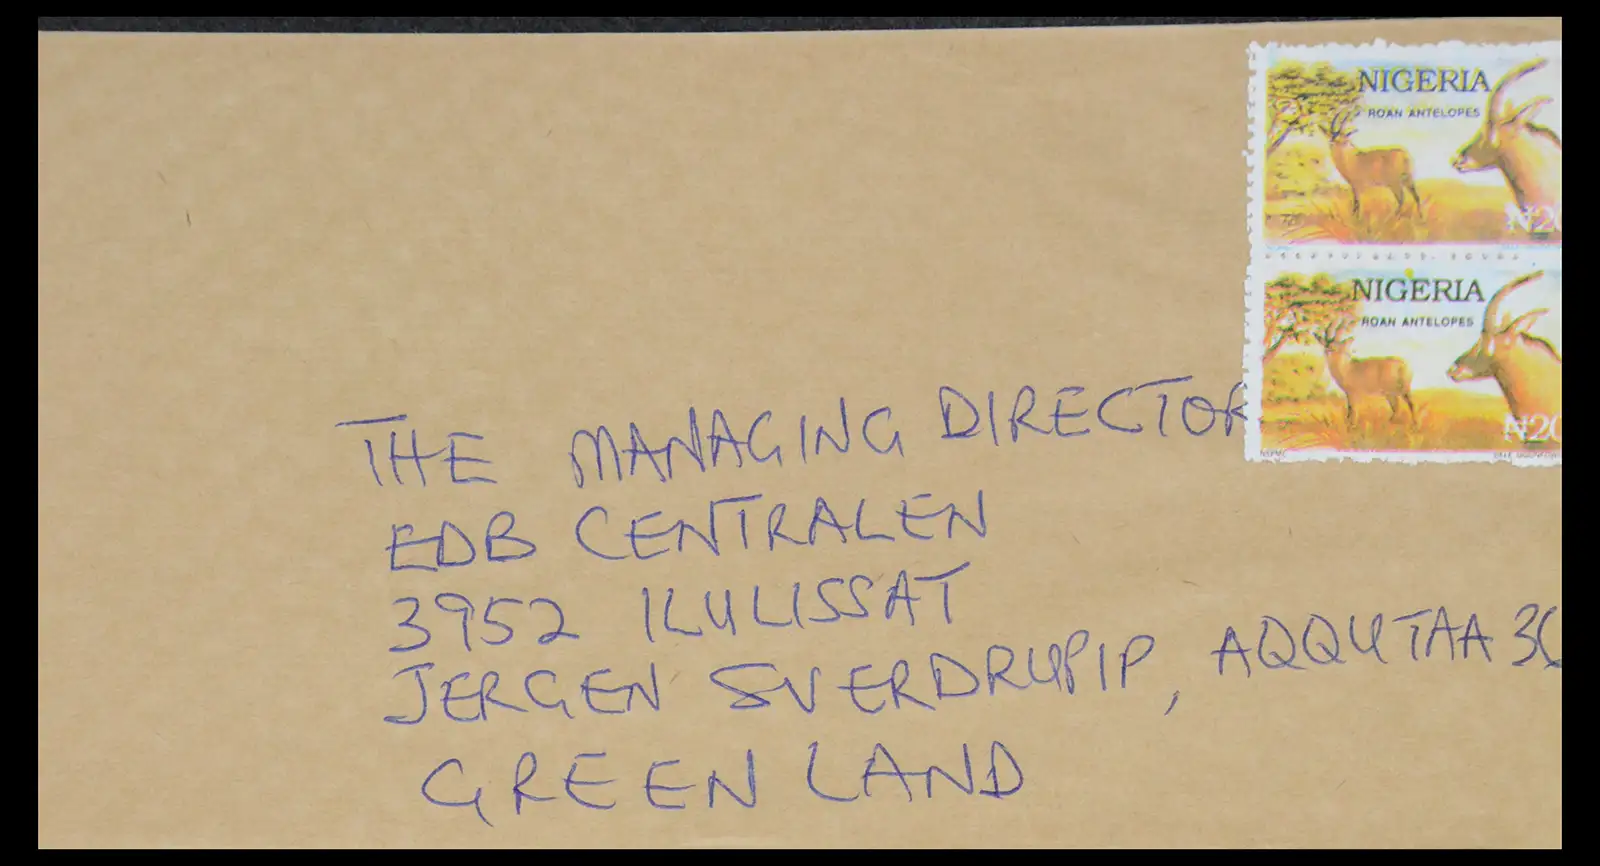 NIGERIA
ROAN ANTELOPES
₦20
NIGERIA
ROAN ANTELOPES
₦20
THE MANAGING DIRECTOR
EDB CENTRALEN
3952 ILULISSAT
JERGEN SVERDRUPIP, AQQUTAA
GREEN LAND